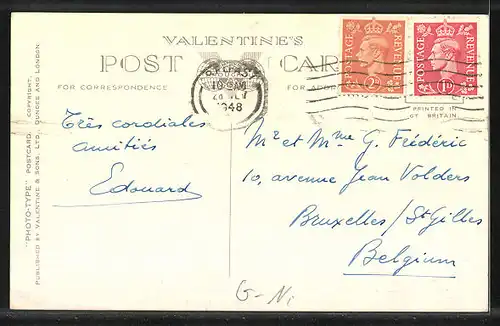 VALENTINE'S
POST CARD
FOR CORRESPONDENCE
FOR
10
1948
POSTAGE REVENUE
2D
POSTAGE REVENUE
1D
PRINTED IN
GT BRITAIN.
"PHOTO-TYPE" POSTCARD. COPYRIGHT.
PUBLISHED BY VALENTINE & SONS, LTD., DUNDEE AND LONDON.
Très cordiales
amitiés
Edouard
Mr et Mme G. Frédéric
10, avenue Jean Volders
Bruxelles/St Gilles
Belgium
G-Ni